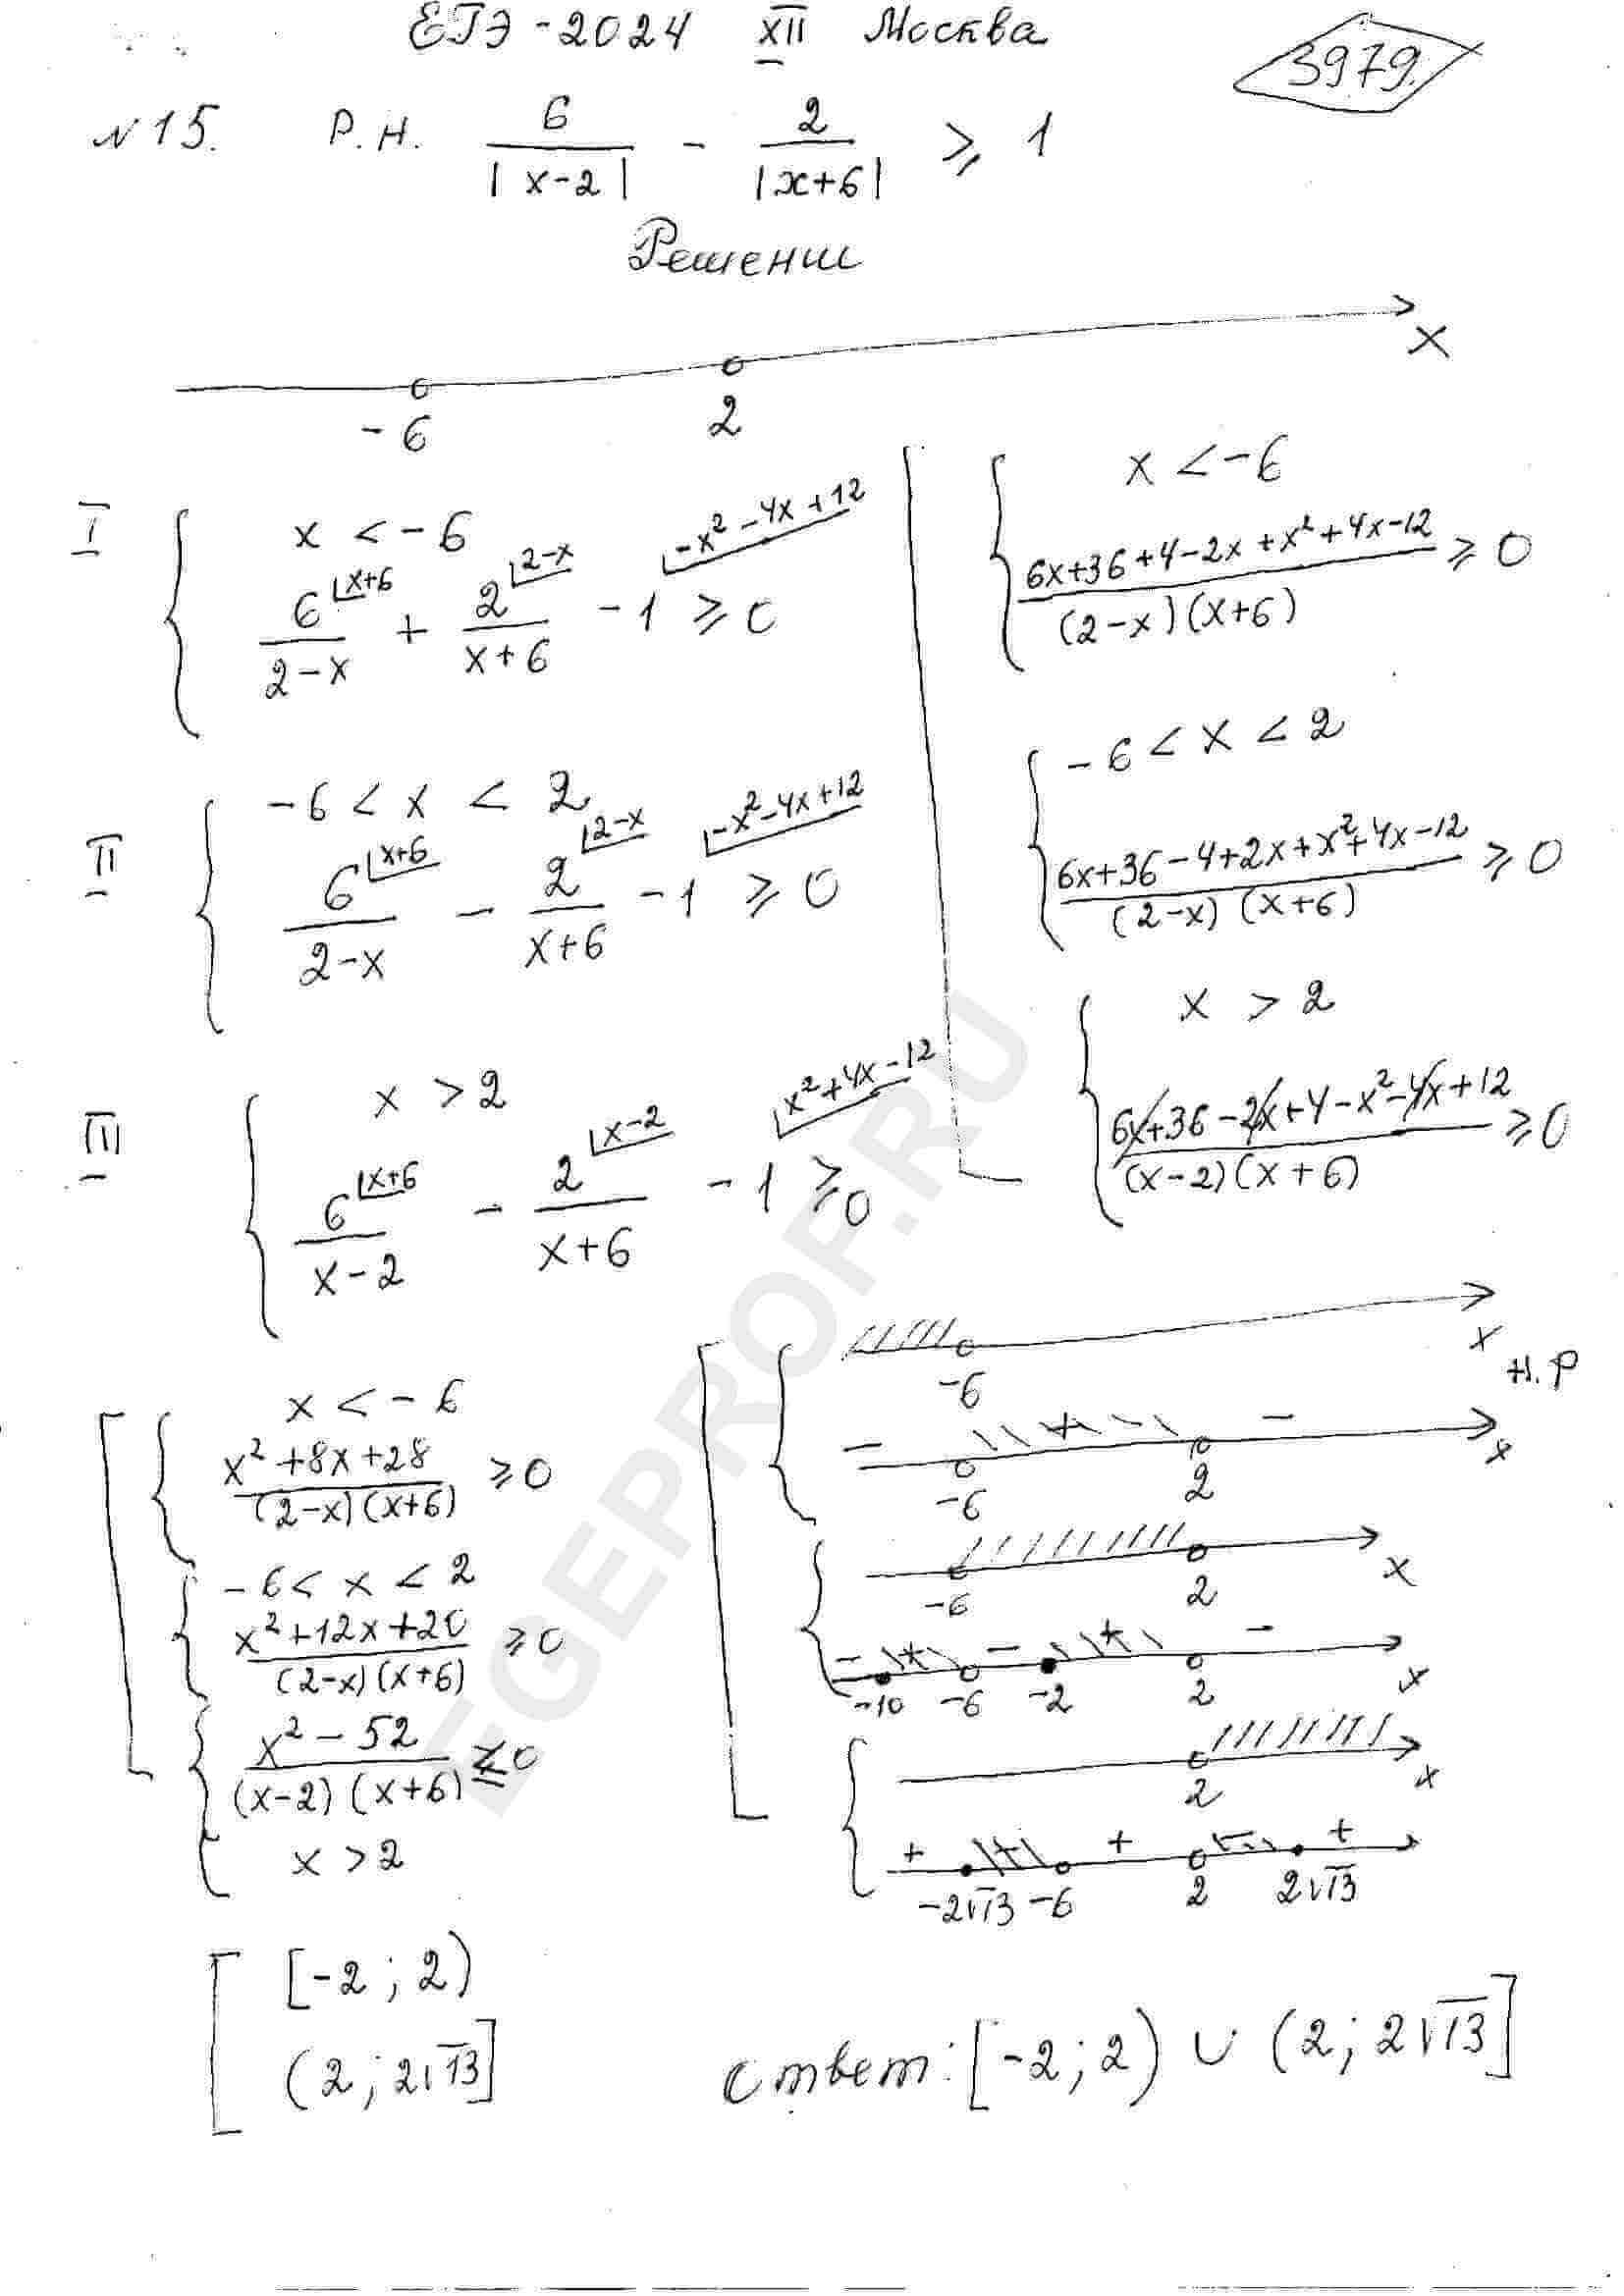 ЕГЭ-2024 XII Москва
3979.
№15. Р.Н. 6/|x-2| - 2/|x+6| ⩾ 1
Решении
x
-6 2
I
{ x < -6
6⌊x+6/(2-x) + 2⌊2-x/(x+6) - 1⌊-x²-4x+12 ⩾ 0
II
{ -6 < x < 2
6⌊x+6/(2-x) - 2⌊2-x/(x+6) - 1⌊-x²-4x+12 ⩾ 0
III
{ x > 2
6⌊x+6/(x-2) - 2⌊x-2/(x+6) - 1⌊x²+4x-12 ⩾ 0
[ { x < -6
(6x+36+4-2x+x²+4x-12)/((2-x)(x+6)) ⩾ 0
{ -6 < x < 2
(6x+36-4+2x+x²+4x-12)/((2-x)(x+6)) ⩾ 0
{ x > 2
(6x+36-2x+4-x²-4x+12)/((x-2)(x+6)) ⩾ 0
[ { x < -6
(x²+8x+28)/((2-x)(x+6)) ⩾ 0
{ -6 < x < 2
(x²+12x+20)/((2-x)(x+6)) ⩾ 0
{ (x²-52)/((x-2)(x+6)) ⩽ 0
x > 2
[ { -6 x
Н.Р
- + -
-6 2 x
{ -6 2 x
- + - + -
-10 -6 -2 2 x
{ 2 x
+ - + - +
-2√13 -6 2 2√13
[ [-2; 2)
(2; 2√13]
ответ: [-2; 2) ∪ (2; 2√13]
EGEPROF.RU